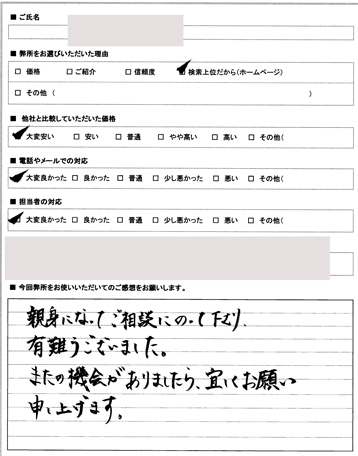 ■ ご氏名
■ 弊所をお選びいただいた理由
□ 価格 □ ご紹介 □ 信頼度 ☑ 検索上位だから(ホームページ)
□ その他 ( )
■ 他社と比較していただいた価格
☑ 大変安い □ 安い □ 普通 □ やや高い □ 高い □ その他(
■ 電話やメールでの対応
☑ 大変良かった □ 良かった □ 普通 □ 少し悪かった □ 悪い □ その他(
■ 担当者の対応
☑ 大変良かった □ 良かった □ 普通 □ 少し悪かった □ 悪い □ その他(
■ 今回弊所をお使いいただいてのご感想をお願いします。
親身になってご相談にのって下さり、
有難うございました。
またの機会がありましたら、宜しくお願い
申し上げます。